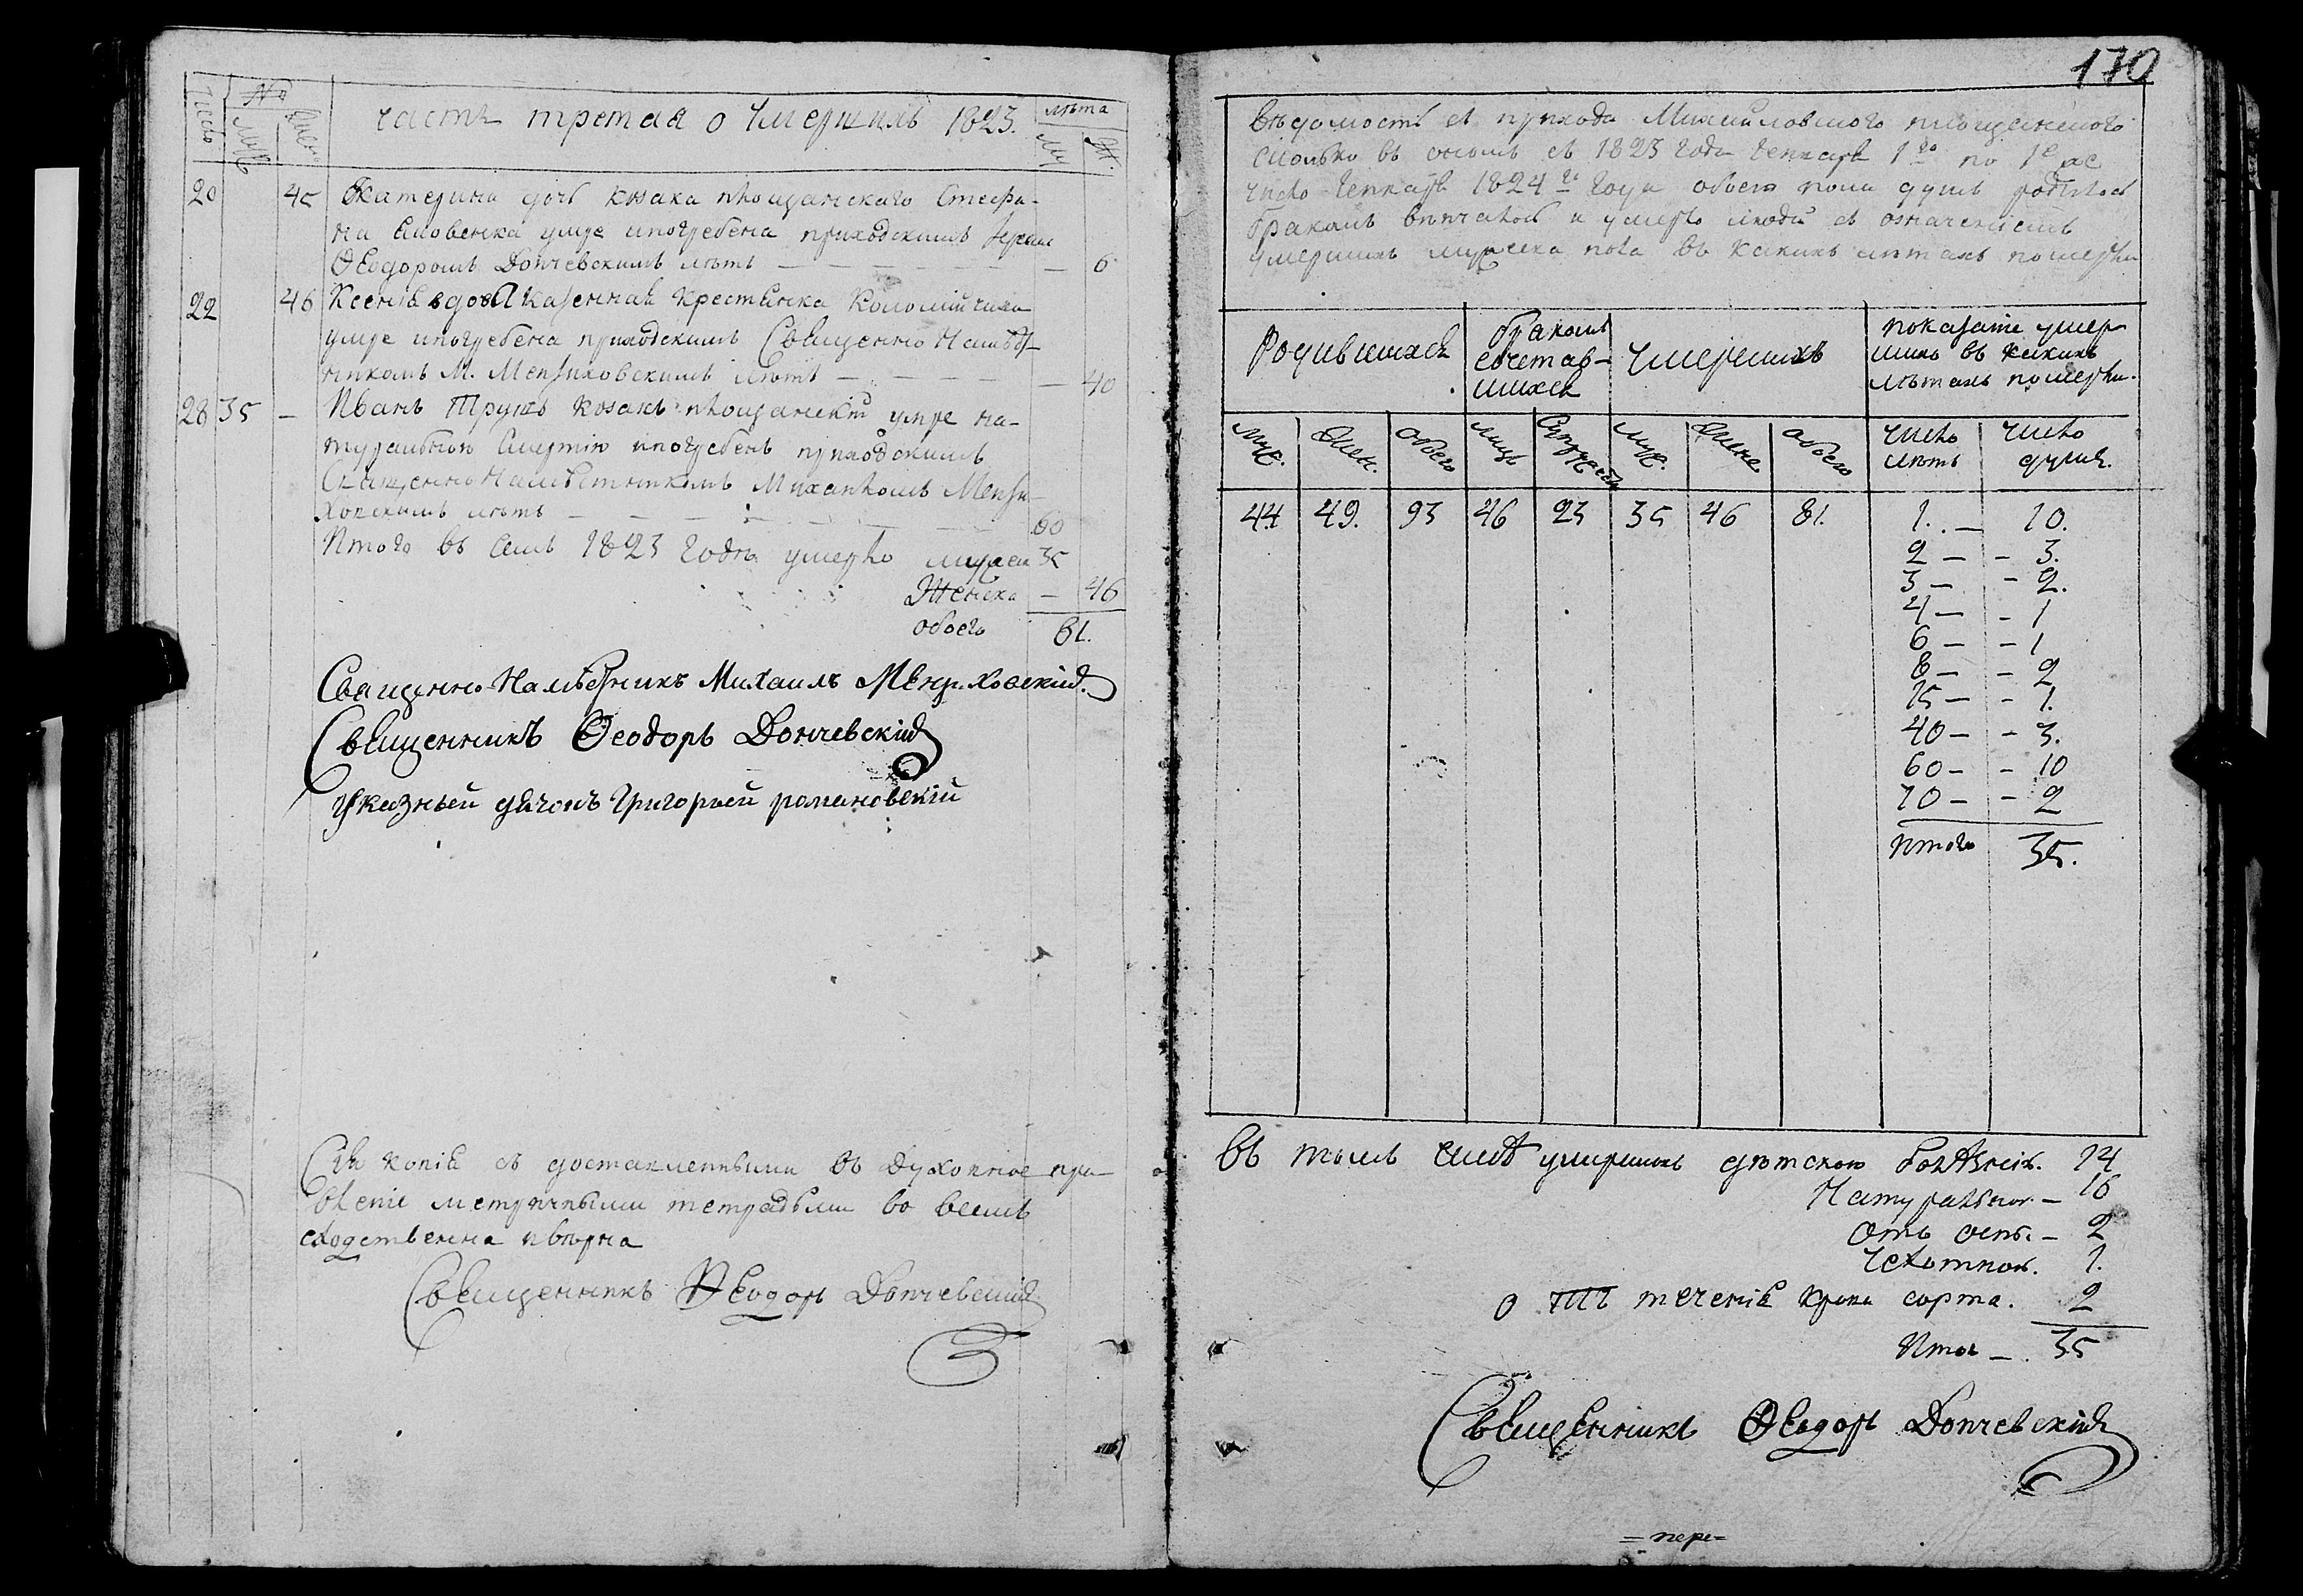 число
№
муж
женс
часть третая о умершихъ 1823.
лѣта
му
же.
20 45 Екатерина дочь козака площанскаго Стефа-
на умре ипогребена приходскимъ Іереем
Ѳеодоромъ Дончевскимъ лѣтъ — 6
22 46 Ксенія вдова казенная крестянка Коломійчиха
умре ипогребена приходскимъ Священно Намѣст-
никомъ М. Мензиховскимъ лѣтъ — 40
28 35 — Иванъ Трушъ козакъ площанскій умре на-
туральною Смертію ипогребенъ приходскимъ
Священно Намѣстникомъ Михаиломъ Мензи-
ховскимъ лѣтъ — 60
Итого въ семъ 1823 годѣ умерло мужеск 35
Женска — 46
обоего 81.
Священно-Намѣстникъ Михаилъ Мензиховскій.
Священникъ Ѳеодоръ Дончевскій
Указный дячокъ Григорией романовскій
Сія копія съ доставленными въ духовное пра-
вленіе метричными тетрадьми во всемъ
сходственна ивѣрна
Священникъ Ѳеодоръ Дончевскій
170
Вѣдомость съ прихода Михайловского площанского
сколько въ ономъ съ 1823 года Генваря 1го по 1е же
число Генваря 1824го года обоего пола душъ родилось
бракомъ вѣнчалось и умерло людей съ означеніемъ
умершихъ мужеска пола въ какихъ лѣтахъ померли
Родившихся
бракомъ
сочетав-
шихся
Умершихъ
показате умер-
шихъ въ какихъ
лѣтахъ померли.
муж. жен. обоего лицъ Супружествъ муж. жене обоего число лѣтъ число душъ.
44 49. 93 46 23 35 46 81. 1. — 10.
2 — — 3.
3 — — 2.
4 — — 1
6 — — 1
8 — — 2
15 — — 1.
40 — — 3.
60 — — 10
70 — — 2
Итого 35.
Въ томъ числѣ умершихъ дѣтскою болѣзнію. 14
Натуральною. — 16
Отъ оспы. — 2
Чехоткою. 1.
отъ теченія крови горла. 2
Итог — . 35
Священникъ Ѳеодоръ Дончевскій
= пере =